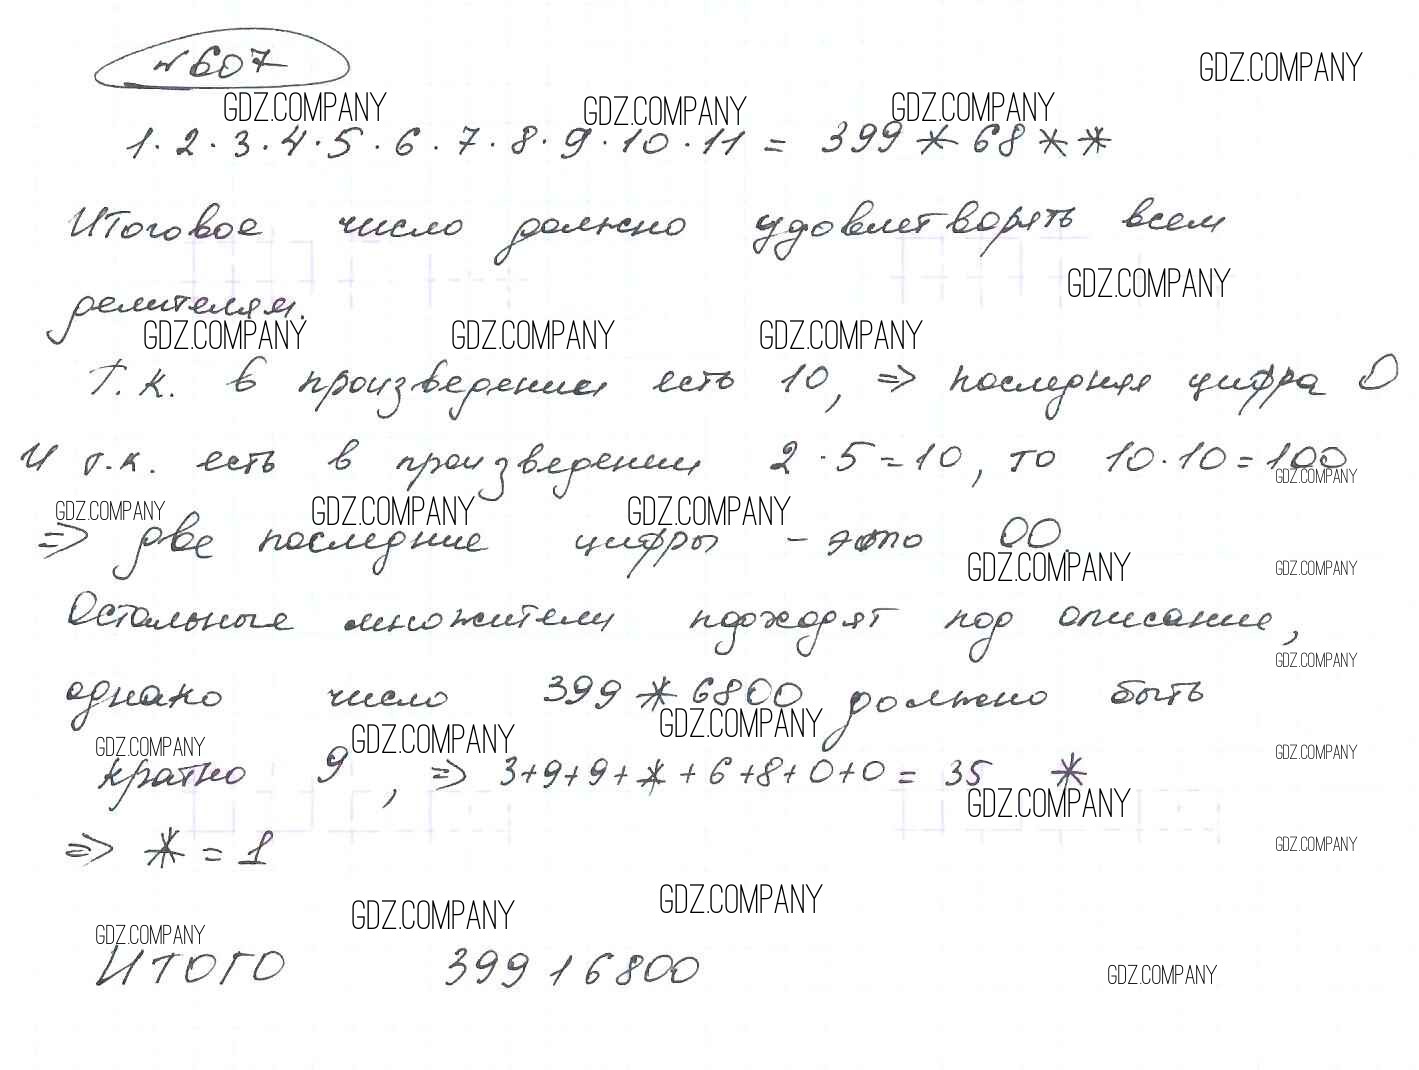 №607
GDZ.COMPANY
GDZ.COMPANY GDZ.COMPANY GDZ.COMPANY
1·2·3·4·5·6·7·8·9·10·11 = 399*68**
Итоговое число должно удовлетворять всем
GDZ.COMPANY
делителям.
GDZ.COMPANY GDZ.COMPANY GDZ.COMPANY
Т.к. в произведении есть 10, => последняя цифра 0
И т.к. есть в произведении 2·5=10, то 10·10=100
GDZ.COMPANY
GDZ.COMPANY GDZ.COMPANY GDZ.COMPANY
=> две последние цифры - это 00.
GDZ.COMPANY GDZ.COMPANY
Остальные множители подходят под описание,
GDZ.COMPANY
однако число 399*6800 должно быть
GDZ.COMPANY GDZ.COMPANY GDZ.COMPANY GDZ.COMPANY
кратно 9, => 3+9+9+*+6+8+0+0 = 35 *
GDZ.COMPANY
=> * = 1
GDZ.COMPANY
GDZ.COMPANY GDZ.COMPANY
GDZ.COMPANY
ИТОГО 39916800
GDZ.COMPANY